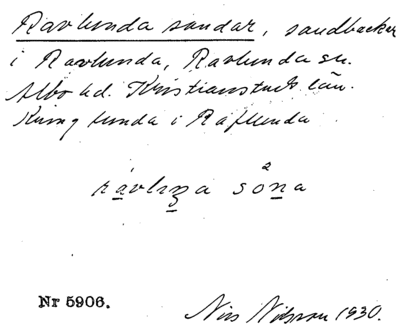 Ravlunda sandar, sandbackar
i Ravlunda, Ravlunda sn.
Albo hd. Kristianstads län.
Kring lunda i Raflunda
Nr 5906.
Nils Nilsson 1930.